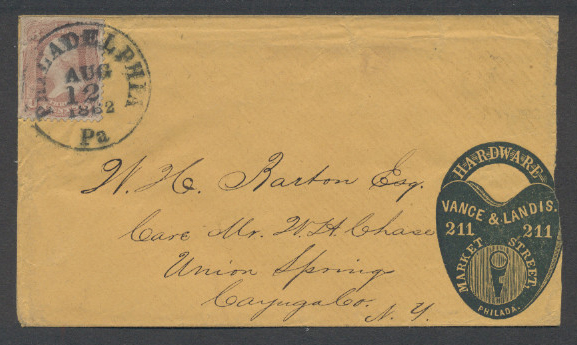 PHILADELPHIA
AUG
12
1862
Pa
W. H. Barton Esq.
Care Mr. W. H. Chase
Union Springs
Cayuga Co.
N. Y.
HARDWARE
VANCE & LANDIS.
211 211
MARKET STREET
PHILADA.